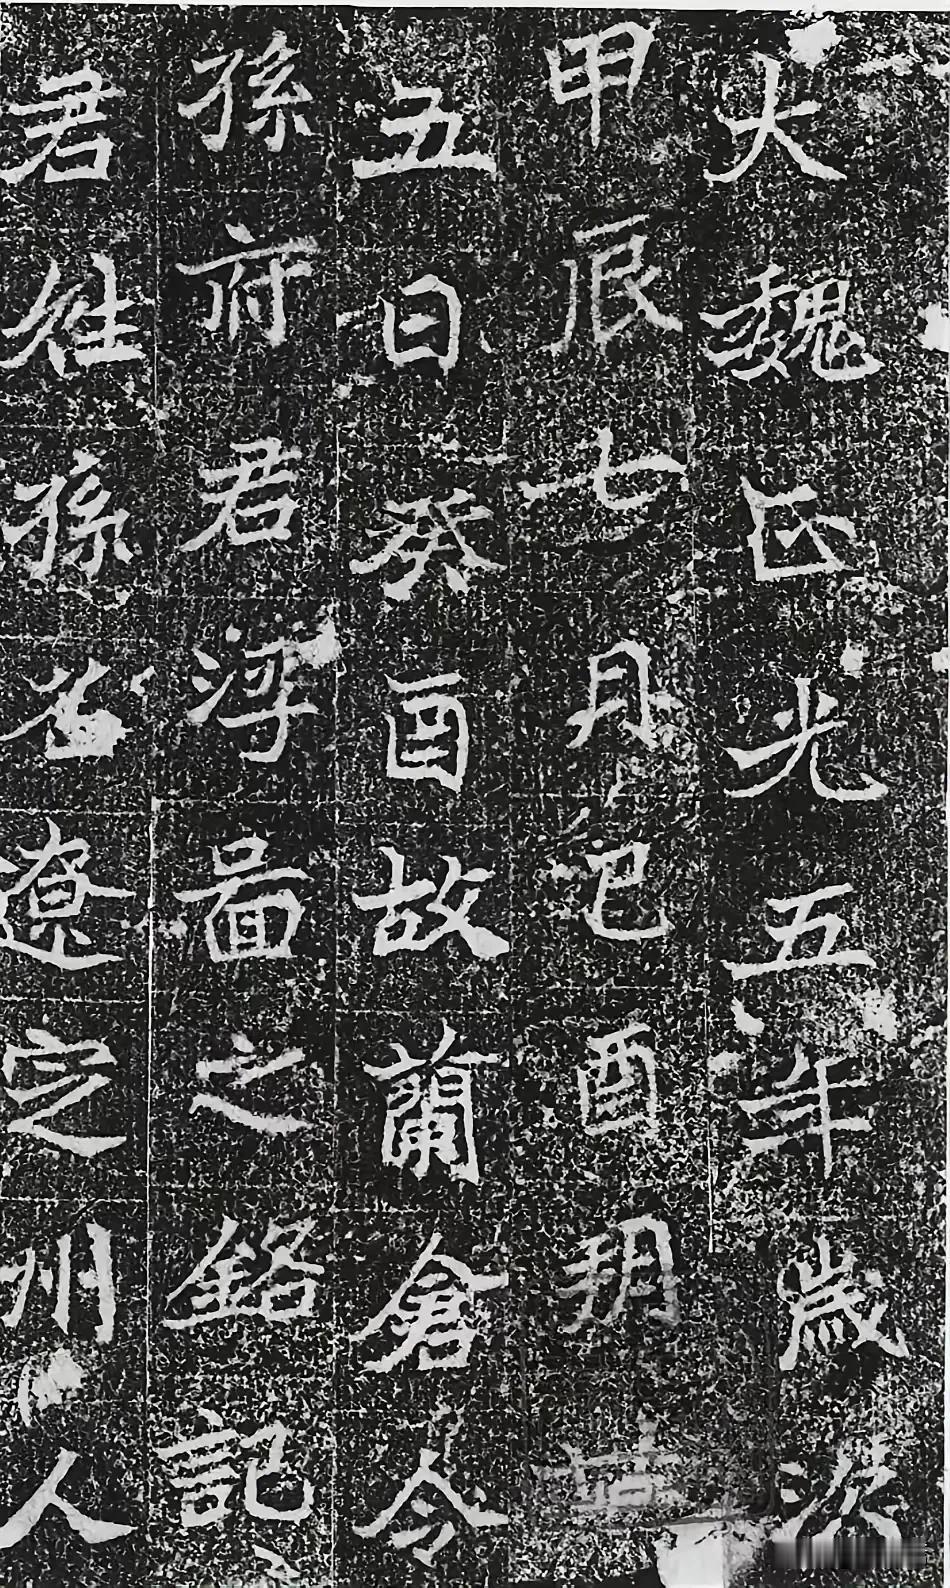 大魏正光五年歲次
甲辰七月己酉朔廿
五日癸酉故蘭倉令
孫府君浮圖之銘記
君姓孫名遼定州人